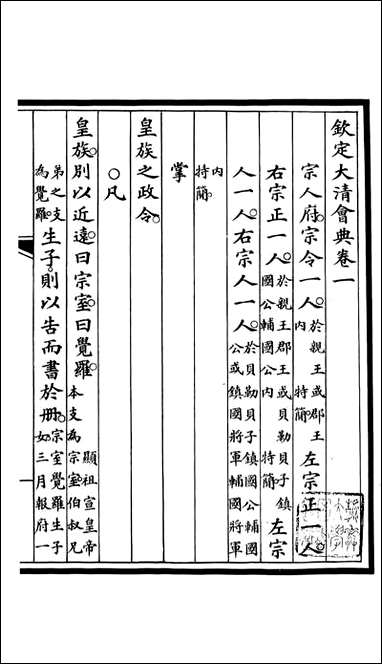 欽定大清會典卷一
宗人府。宗令一人。於親王或郡王內特簡。左宗正一人。
右宗正一人。於親王郡王或貝勒貝子鎮國公輔國公內特簡。左宗
人一人。右宗人一人。於貝勒貝子鎮國公輔國公或鎮國將軍輔國將軍
內特簡。
掌
皇族之政令。
○凡
皇族別以近遠。曰宗室。曰覺羅。顯祖宣皇帝本支為宗室。伯叔兄
弟之支為覺羅。生子。則以告而書於冊。宗室覺羅生子女。三月報府一